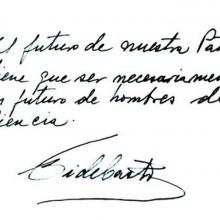 El futuro de nuestra Pa
iene que ser necesariame
n futuro de hombres de
iencia.
Fidel Castro